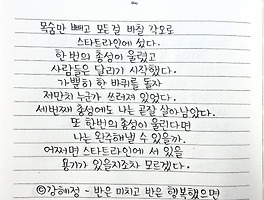 May
목숨만 빼고 모든걸 바칠 각오로
스타트라인에 섰다.
한 번의 총성이 울렸고
사람들은 달리기 시작했다.
가볍게 한 바퀴를 돌자
저만치 누군가 쓰러져 있었다.
세번째 총성에도 나는 곧잘 살아남았다.
또 한번의 총성이 울린다면
나는 완주해낼 수 있을까.
어쩌면 스타트라인에 서 있을
용기가 있을지조차 모르겠다.
©강혜정 - 반은 미치고 반은 행복했으면